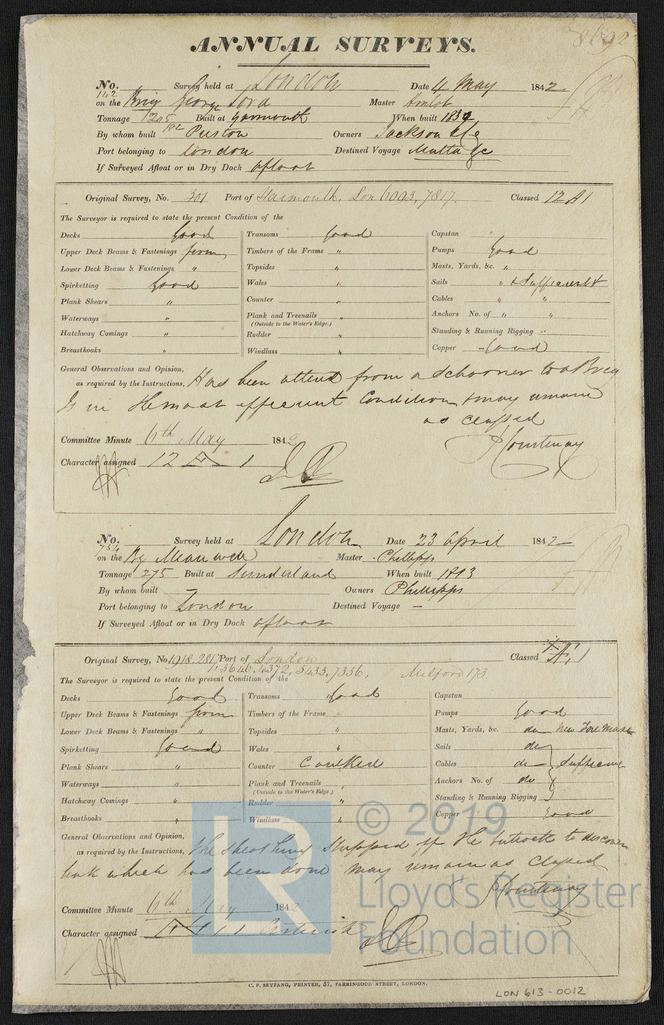 8692
ANNUAL SURVEYS.
No. 142 Survey held at London Date 4 May 1842
on the Brig George Lord Master
Tonnage 1205 Built at Yarmouth When built 1834
By whom built Preston Owners Jackson &c
Port belonging to London Destined Voyage Malta &c
If Surveyed Afloat or in Dry Dock afloat
Original Survey, No. 301 Port of Yarmouth, Lon 6093, 7817. Classed 12 A 1
The Surveyor is required to state the present Condition of the
Decks Good Transoms Good Capstan "
Upper Deck Beams & Fastenings firm Timbers of the Frame " Pumps Good
Lower Deck Beams & Fastenings " Topsides " Masts, Yards, &c. "
Spirketting Good Wales " Sails " & Sufficient
Plank Shears " Counter " Cables " "
Waterways " Plank and Treenails " Anchors No. of " "
(Outside to the Water's Edge.)
Hatchway Comings " Rudder " Standing & Running Rigging "
Breasthooks " Windlass " Copper Good
General Observations and Opinion,
as required by the Instructions, Has been altered from a Schooner to a Brig
Is in the most efficient Condition & may remain
as classed
Committee Minute 6th May 1842 Courtenay
Character assigned 12 A 1
No. 754 Survey held at London Date 23 April 1842
on the Bg Master Phillipps
Tonnage 275 Built at Sunderland When built 1813
By whom built Owners Phillipps
Port belonging to London Destined Voyage —
If Surveyed Afloat or in Dry Dock afloat
Original Survey, No. 1918. 2817 Port of London Classed Æ 1
3646, 4372, 5433, 7336, Milford 173
The Surveyor is required to state the present Condition of the
Decks Good Transoms Good Capstan
Upper Deck Beams & Fastenings firm Timbers of the Frame " Pumps Good
Lower Deck Beams & Fastenings " Topsides " Masts, Yards, &c. do New Fore Mast
Spirketting Good Wales " Sails do
Plank Shears " Counter Caulked Cables do Sufficient
Waterways " Plank and Treenails " Anchors No. of do
(Outside to the Water's Edge.)
Hatchway Comings " Rudder " Standing & Running Rigging
Breasthooks " Windlass " Copper Good
General Observations and Opinion,
as required by the Instructions, The Sheathing stripped off the buttock to discover
leak which has been done may remain as classed
Courtenay
Committee Minute 6th May 1842
Character assigned Æ 1
C. F. SEYFANG, PRINTER, 57, FARRINGDON STREET, LONDON.
LON 613-0012
LR © 2019
Lloyd's Register
Foundation